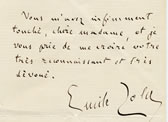 Vous m'avez infiniment
touché, chère madame, et je
vous prie de me croire votre
très reconnaissant et très
dévoué.
Emile Zola